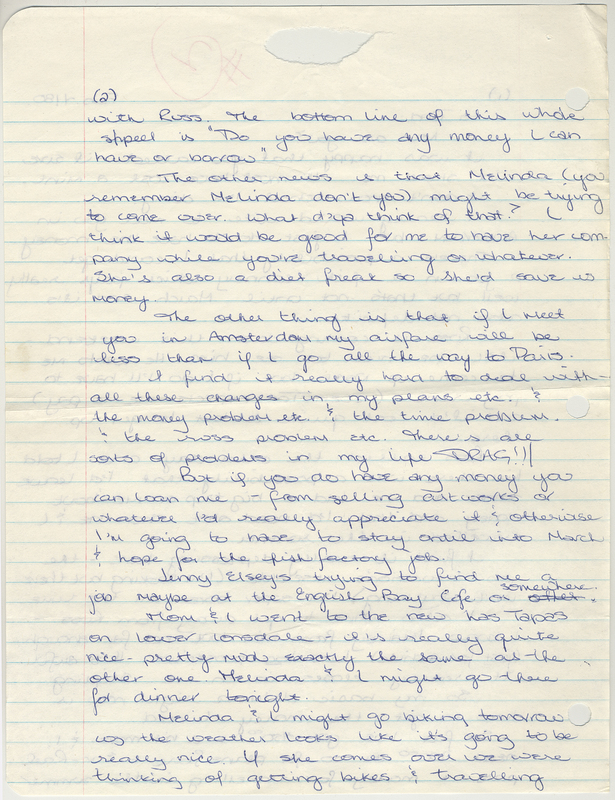 (2)
with Russ. The bottom line of this whole
shpeel is "Do you have any money I can
have or borrow"
The other news is that Melinda (you
remember Melinda don't you) might be trying
to come over. What d'ya think of that? I
think it would be good for me to have her com-
pany while you're travelling or whatever.
She's also a diet freak so she'd save us
money.
The other thing is that if I meet
you in Amsterdam my airfare will be
less than if I go all the way to Paris.
I find it really hard to deal with
all these changes in my plans etc. &
the money problem etc. & the time problem.
& the Russ problem etc. There's all
sorts of problems in my life DRAG!!!
But if you do have any money you
can loan me - from selling artworks or
whatever I'd really appreciate it & otherwise
I'm going to have to stay until into March
& hope for the fish factory job.
Jenny Elsey's trying to find me a
job maybe at the English Bay Cafe or other somewhere.
Mom & I went to the new Las Tapas
on lower lonsdale - it is really quite
nice - pretty much exactly the same as the
other one Melinda & I might go there
for dinner tonight.
Melinda & I might go biking tomorrow
as the weather looks like it's going to be
really nice. If she comes over we were
thinking of getting bikes & travelling